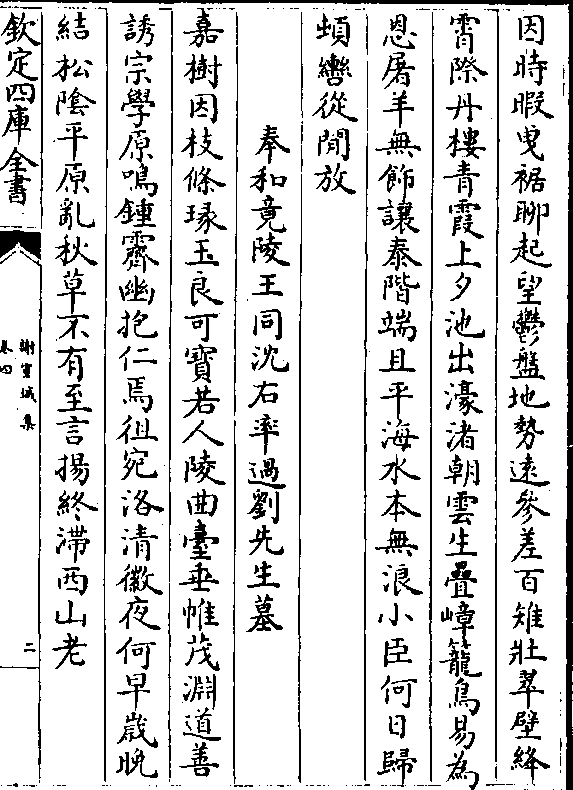 因時暇曵裾聊起望鬱盤地勢遠參差百雉壯翠壁絳
霄際丹樓青霞上夕池出濠渚朝雲生疊嶂籠鳥易為
恩屠羊無飾讓泰階端且平海水本無浪小臣何日歸
頓轡從閒放
奉和竟陵王同沈右率過劉先生墓
嘉樹因枝條琢玉良可寶若人陵曲臺垂帷茂淵道善
誘宗學原鳴鍾霽幽抱仁焉徂宛洛清徽夜何早歲晩
結松陰平原亂秋草不有至言揚終滯西山老
欽定四庫全書
謝宣城集
卷四
二